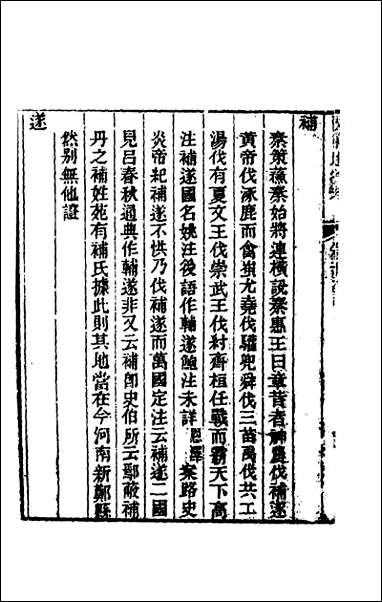 補
秦策蘇秦始將連橫說秦惠王曰章昔者神農伐補遂
黃帝伐涿鹿而禽蚩尤堯伐驩兜舜伐三苗禹伐共工
湯伐有夏文王伐崇武王伐紂齊桓任戰而霸天下高
注補遂國名姚注後語作輔遂鮑注未詳 恩澤 案路史
炎帝紀補遂不恭乃伐補遂而萬國定注云補遂二國
見呂春秋通典作輔遂非又云補卽史伯所云鄢蔽補
丹之補姓苑有補氏據此則其地當在今河南新鄭縣
然别無他證
遂